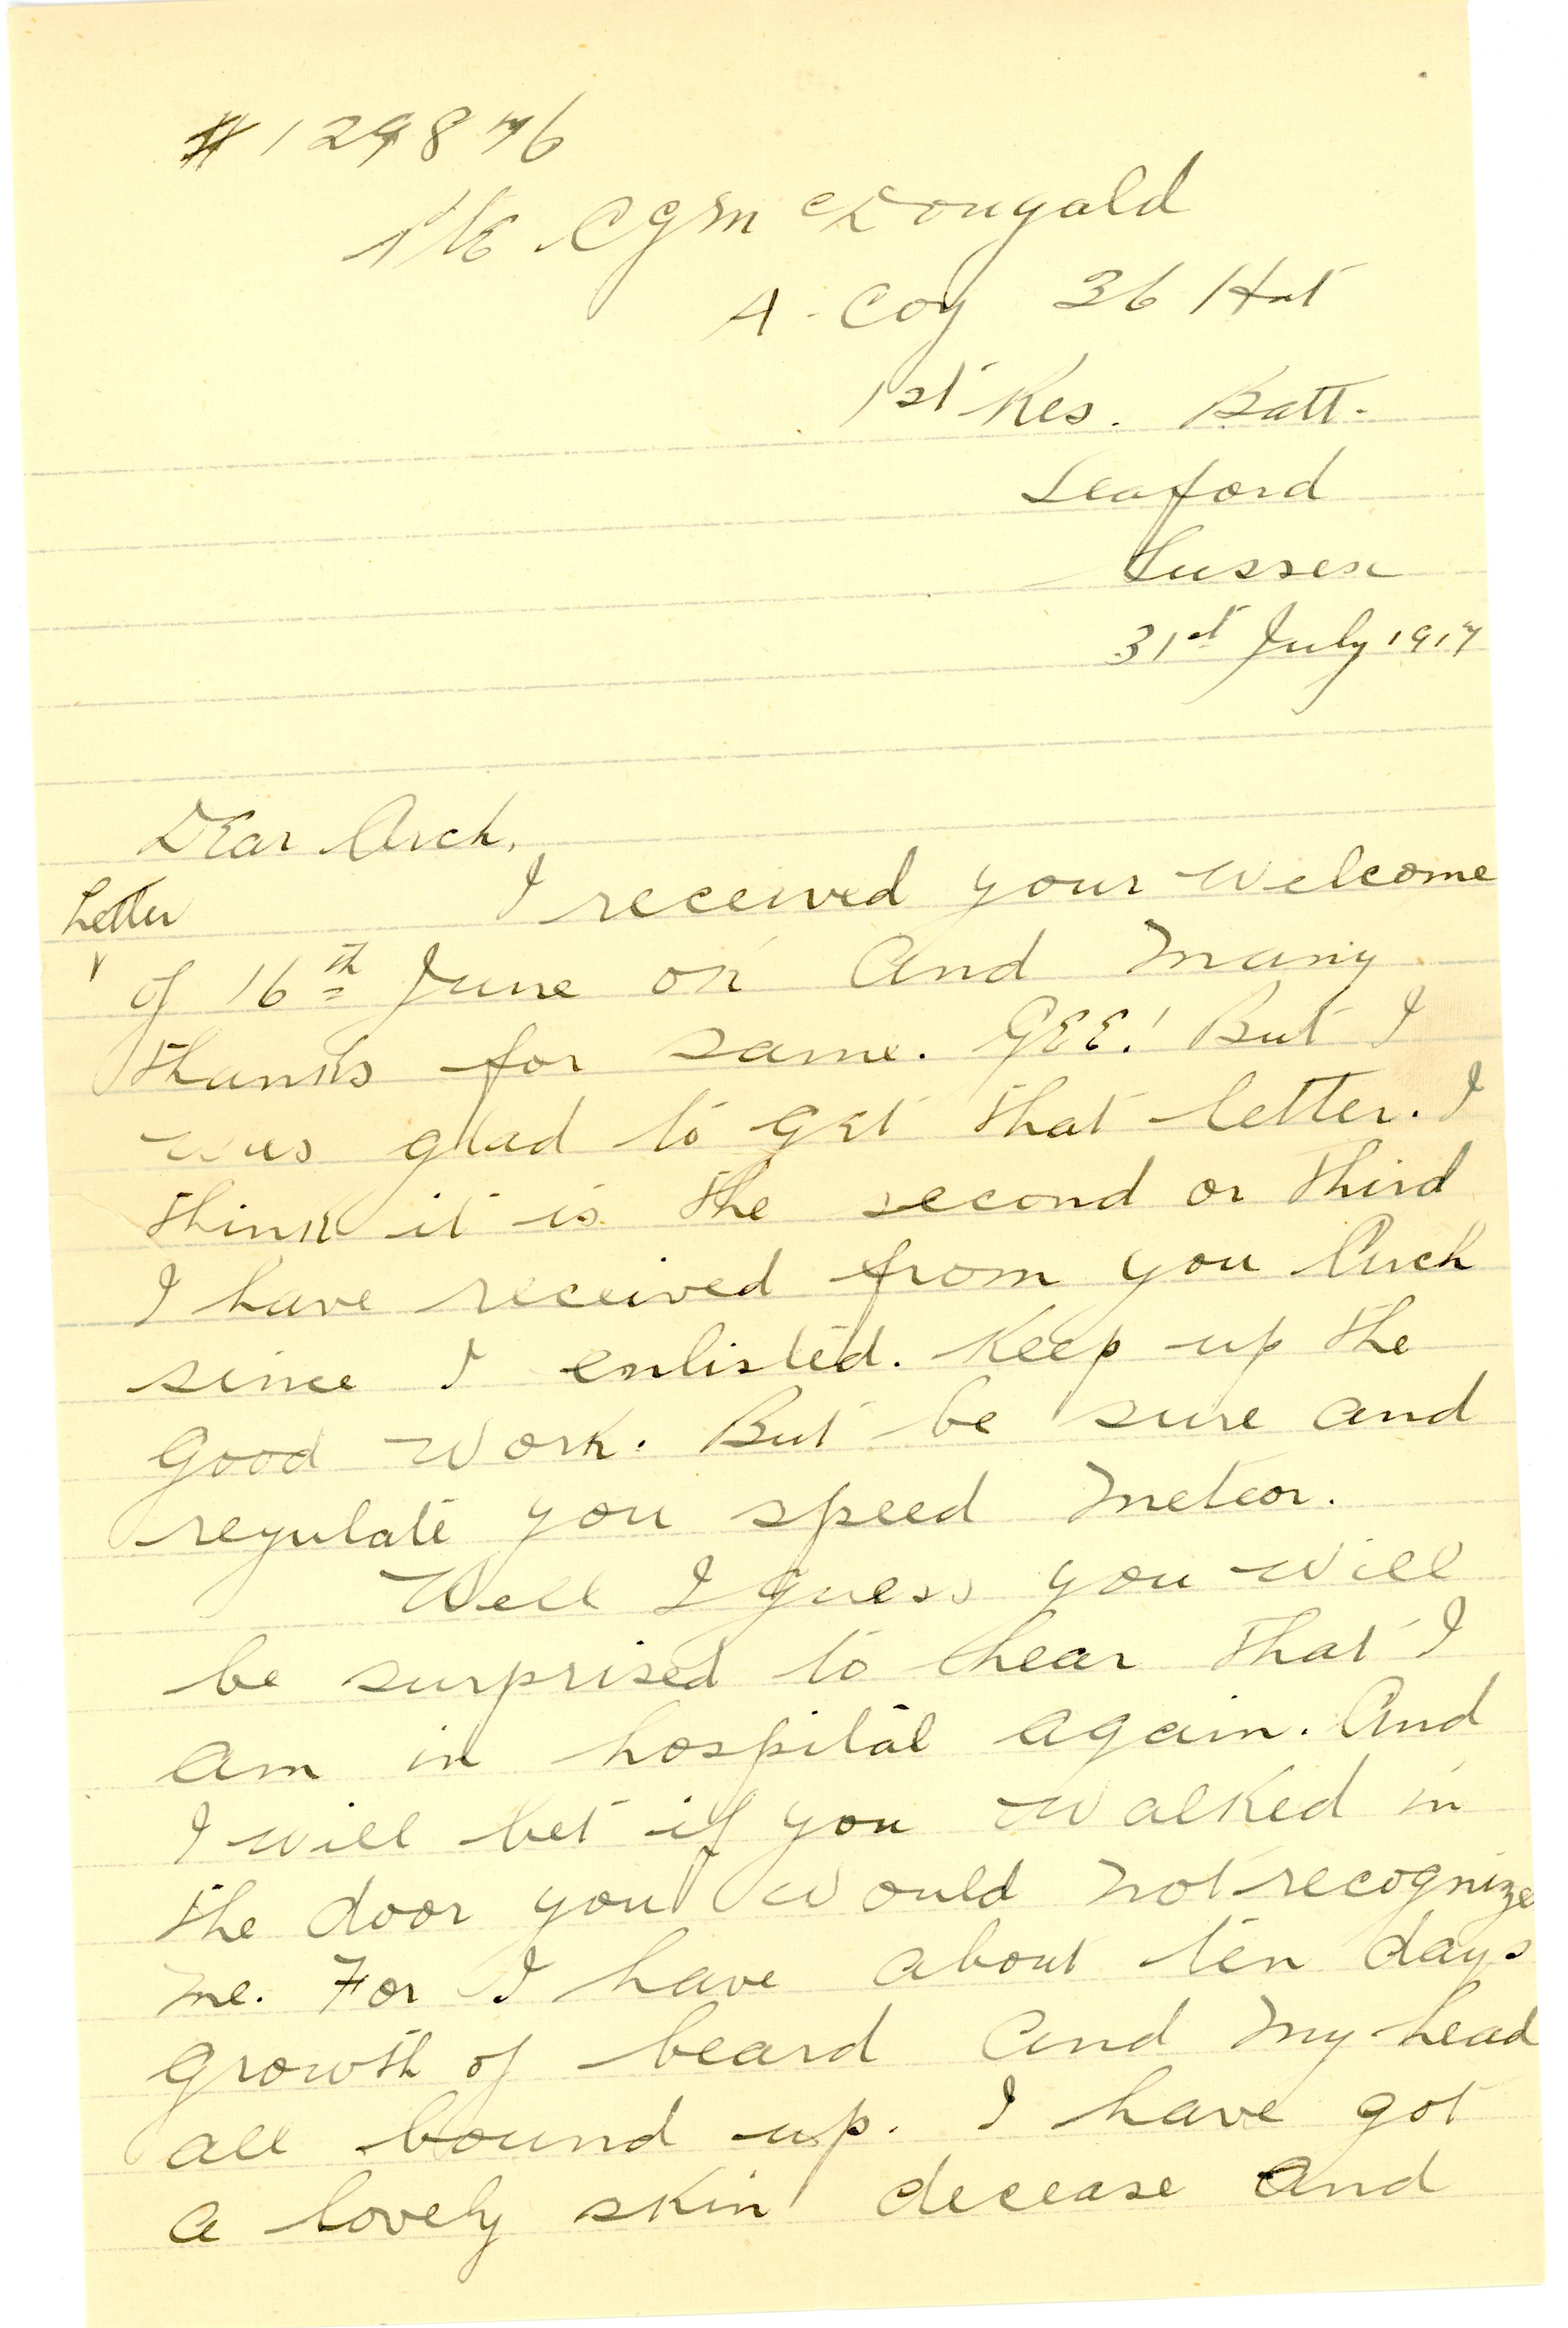 # 129876
Pte C G McDougald
A. Coy 36 Hut
1st Res. Batt.
Seaford
Sussex
31st July 1917
Dear Arch,
Letter
I received your welcome
of 16th June OK and many
thanks for same. GEE! But I
was glad to get that letter. I
think it is the second or third
I have received from you Arch
since I enlisted. Keep up the
good work. But be sure and
regulate you speed meteor.
Well I guess you will
be surprised to hear that I
am in hospital again. And
I will bet if you walked in
the door you would not recognize
me. For I have about ten days
growth of beard and my head
all bound up. I have got
a lovely skin decease and